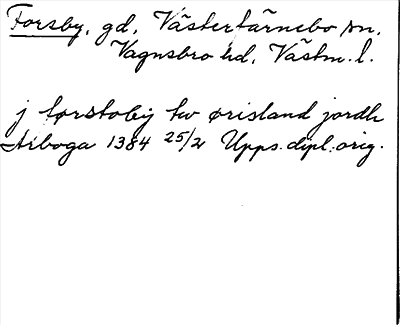 Forsby, gd, Västerfärnebo sn,
Vagnsbro hd, Västm. l.
j forstoby tw ørisland jordh
Arboga 1384 25/2 Upps. dipl. orig.